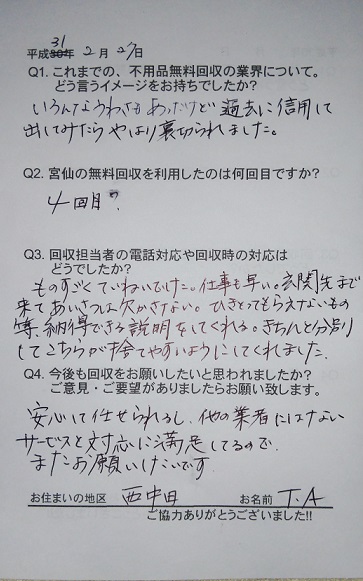 31
平成30年 2月 27日
Q1. これまでの、不用品無料回収の業界について。
どう言うイメージをお持ちでしたか?
いろんなうわさもあったけど 過去に信用して
出してみたら やはり裏切られました。
Q2. 宮仙の無料回収を利用したのは何回目ですか?
4回目?
Q3. 回収担当者の電話対応や回収時の対応は
どうでしたか?
ものすごくていねいでした。仕事も早い。玄関先まで
来てあいさつは欠かさない。ひきとってもらえないもの
等、納得できる説明をしてくれる。きちんと分別
してこちらが捨てやすいようにしてくれました。
Q4. 今後も回収をお願いしたいと思われましたか?
ご意見・ご要望がありましたらお願い致します。
安心して任せられるし、他の業者にはない
サービスと対応に満足してるので
またお願いしたいです
お住まいの地区 西中田 お名前 T.A
ご協力ありがとうございました!!